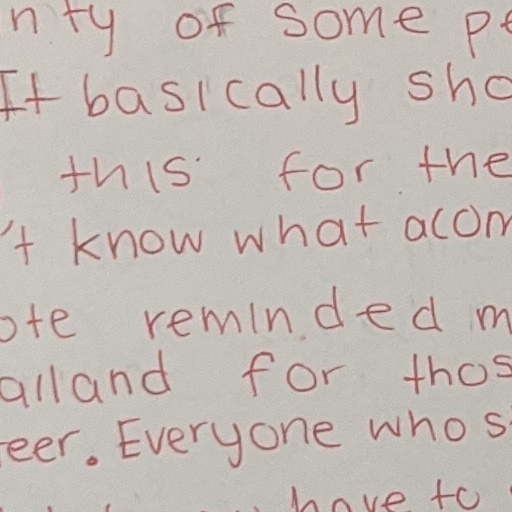 nty of some pe
It basically sho
this for the
't know what acom
ote reminded m
alland for thos
eer. Everyone who s
have to